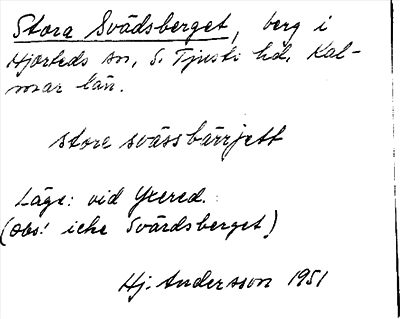 Stora Svädsberget, berg i
Hjorteds sn, S. Tjusts hd, Kal-
mar län.
stora svässbärrjett
Läge: vid Yxered.
(Obs! icke Svärdsberget)
Hj. Andersson 1951